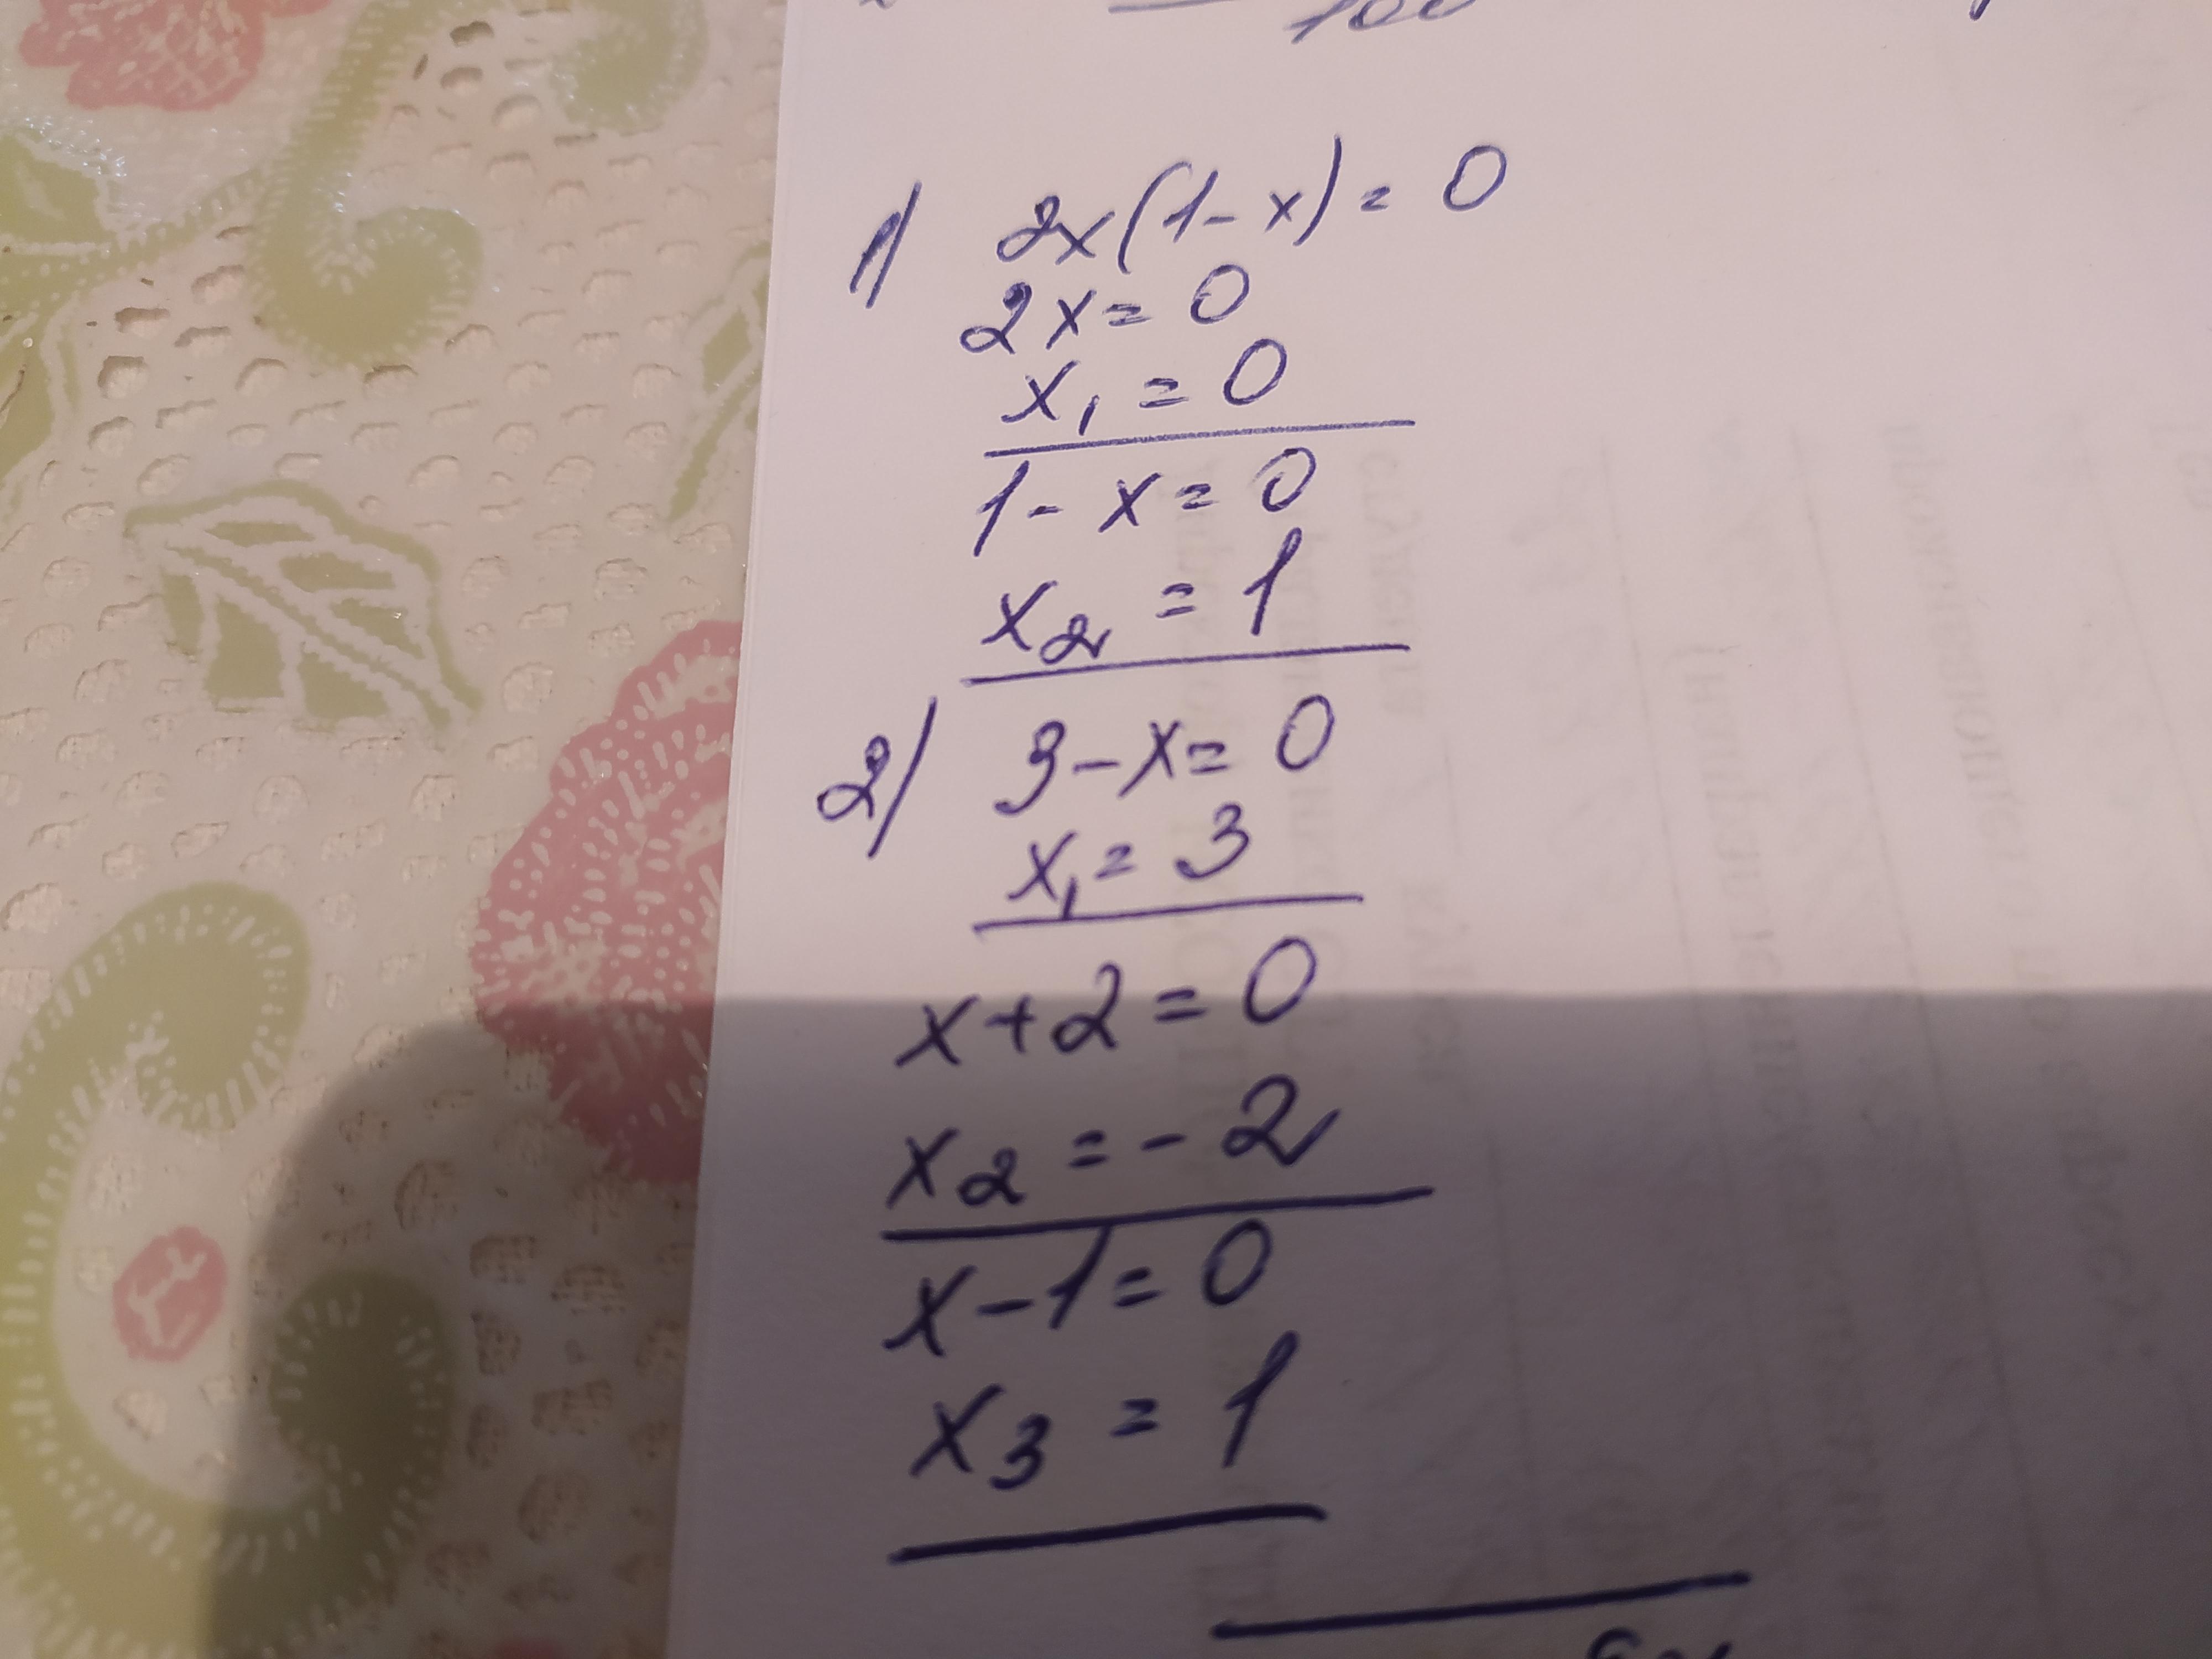 100
1) 2x(1-x)=0
2x=0
x₁=0
1-x=0
x₂=1
2) 3-x=0
x₁=3
x+2=0
x₂=-2
x-1=0
x₃=1